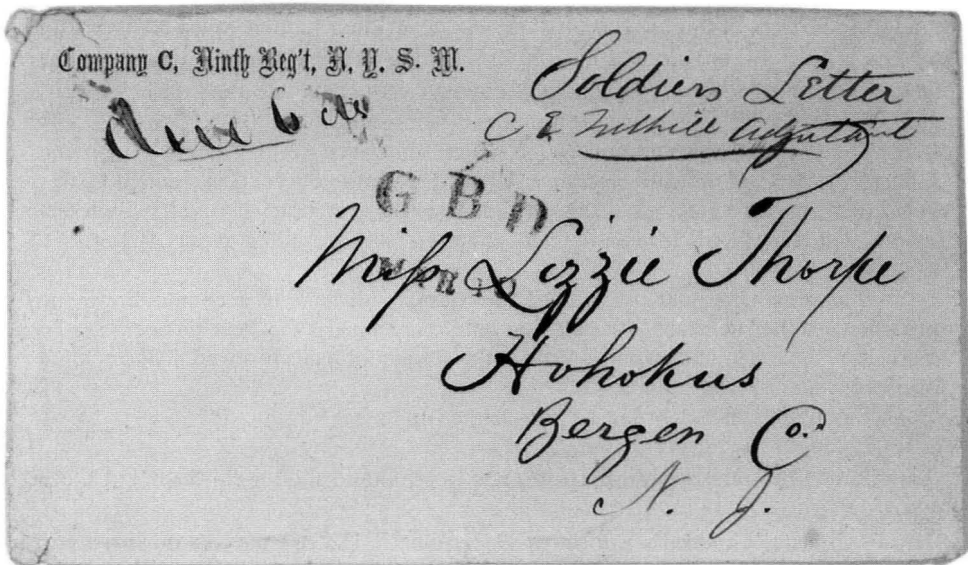 Company C, Ninth Reg't, N. Y. S. M.
Soldiers Letter
C E Adjutant
Due 6
G B D
Miss Lizzie Thorpe
Hohokus
Bergen Co.
N. J.